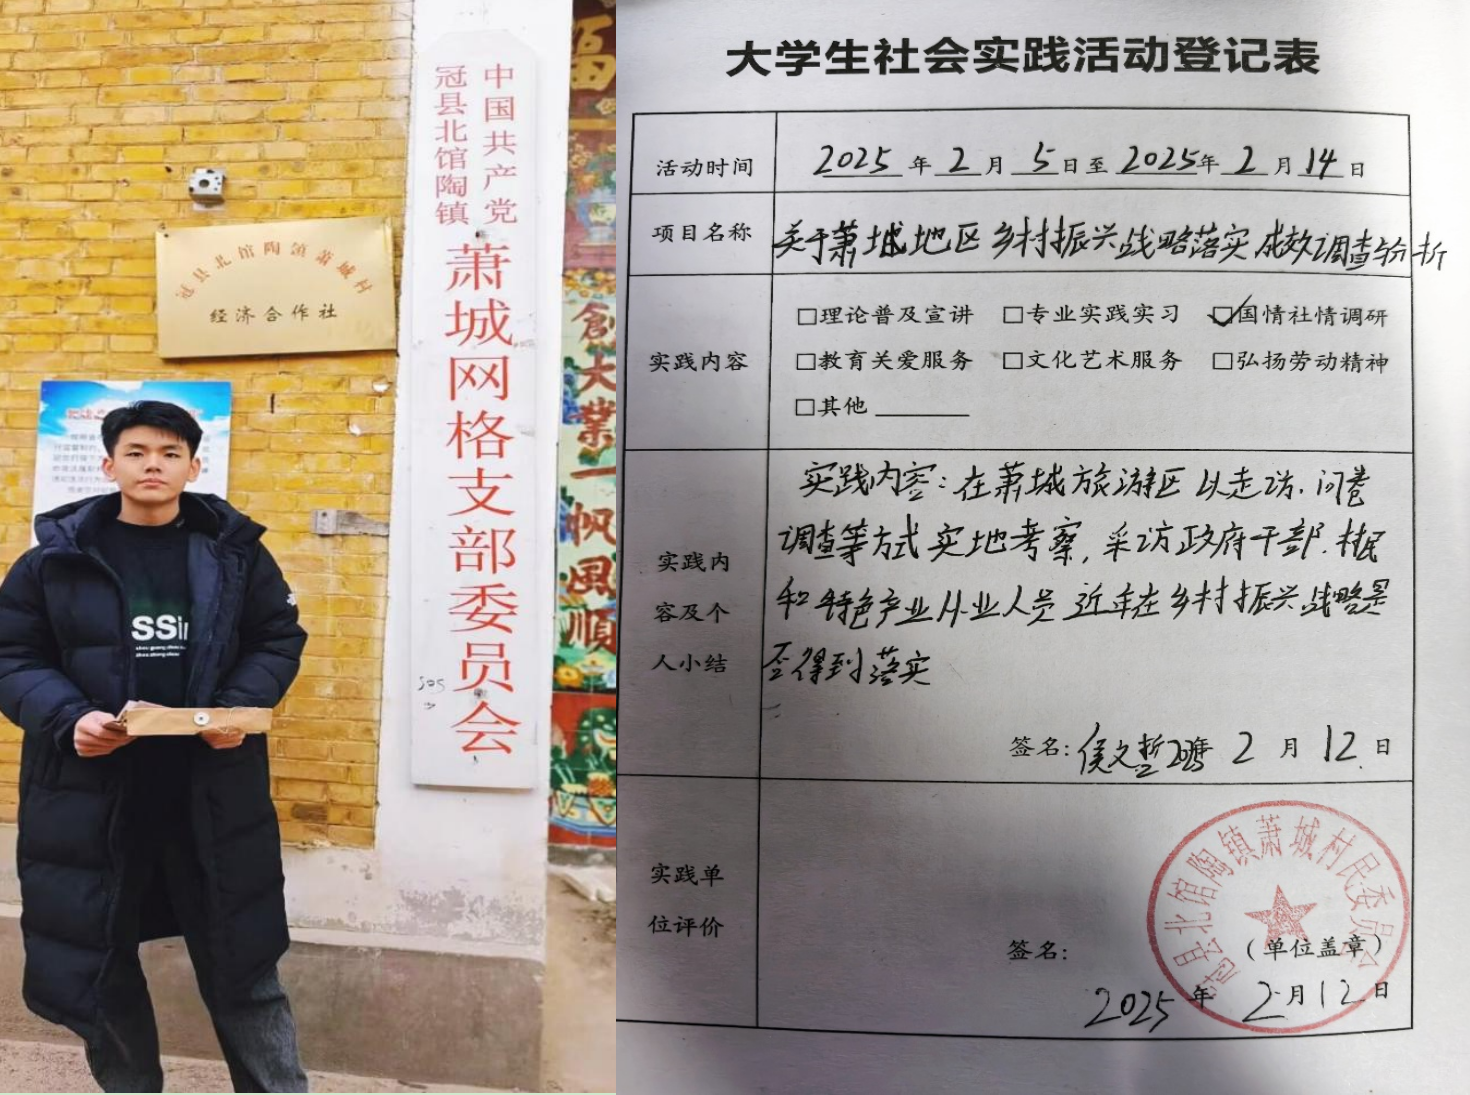 中国共产党
冠县北馆陶镇
萧城网格支部委员会
冠县北馆陶镇萧城村
经济合作社
福
創大業一帆風順
SSi
大学生社会实践活动登记表
活动时间 2025年2月5日至2025年2月14日
项目名称 关于萧城地区乡村振兴战略落实成效调查与分析
实践内容
□理论普及宣讲 □专业实践实习 ☑国情社情调研
□教育关爱服务 □文化艺术服务 □弘扬劳动精神
□其他
实践内
容及个
人小结
实践内容：在萧城旅游区以走访、问卷
调查等方式实地考察，采访政府干部、村民
和特色产业从业人员近年在乡村振兴战略是
否得到落实
签名：侯文哲 2025年2月12日
实践单
位评价
冠县北馆陶镇萧城村民委员会
签名： （单位盖章）
2025年2月12日